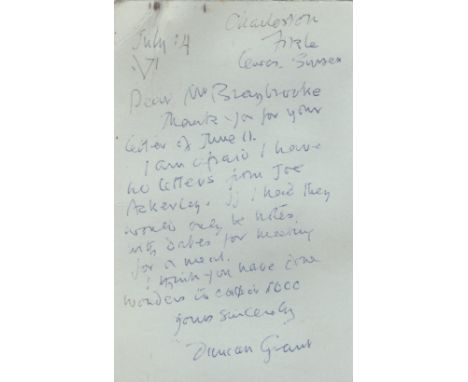 Charleston
July 4
Firle
Lewes. Sussex
Dear Mr Braybrooke
Thank you for your
letter of June 11.
I am afraid I have
no letters from Joe
Ackerley. If I had they
would only be notes
with dates for meeting
for a meal.
I think you have done
wonders to collect
yours sincerely
Duncan Grant